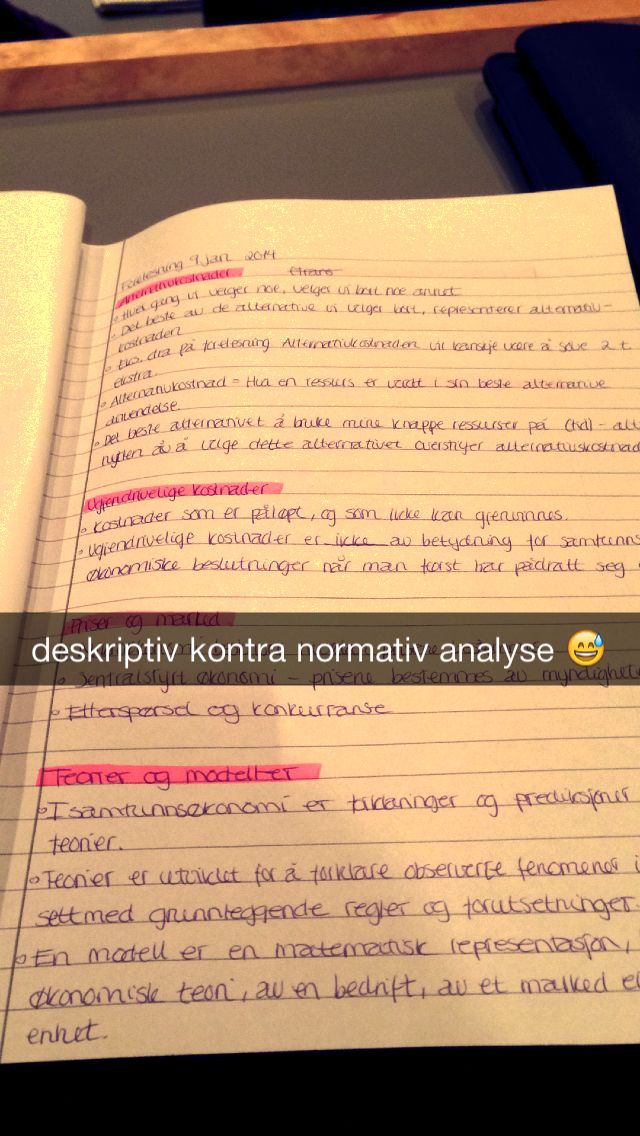 Forelesning 9 Jan 2014
Alternativkostnader
Hver gang vi velger noe, velger vi bort noe annet
Det beste av de alternative vi velger bort, representerer alternativ-
kostnaden
Eks. dra på forelesning Alternativkostnaden vil kanskje være å sove 2 t.
ekstra.
Alternativkostnad = Hva en ressurs er verdt i sin beste alternative
anvendelse.
Det beste alternativet å bruke mine knappe ressurser på (tid) -
nytten av å velge dette alternativet overstiger
Ugjendrivelige kostnader
Kostnader som er påløpt, og som ikke kan gjenvinnes.
Ugjendrivelige kostnader er ikke av betydning for samfunns
økonomiske beslutninger når man først har pådratt seg
Priser og marked
deskriptiv kontra normativ analyse 😅
Sentralstyrt økonomi - prisene bestemmes av
Etterspørsel og konkurranse
Teorier og modeller
I samfunnsøkonomi er forklaringer og prediksjoner
teorier.
Teorier er utviklet for å forklare observerte fenomener i
sett med grunnleggende regler og forutsetninger.
En modell er en matematisk representasjon,
økonomisk teori, av en bedrift, av et marked
enhet.